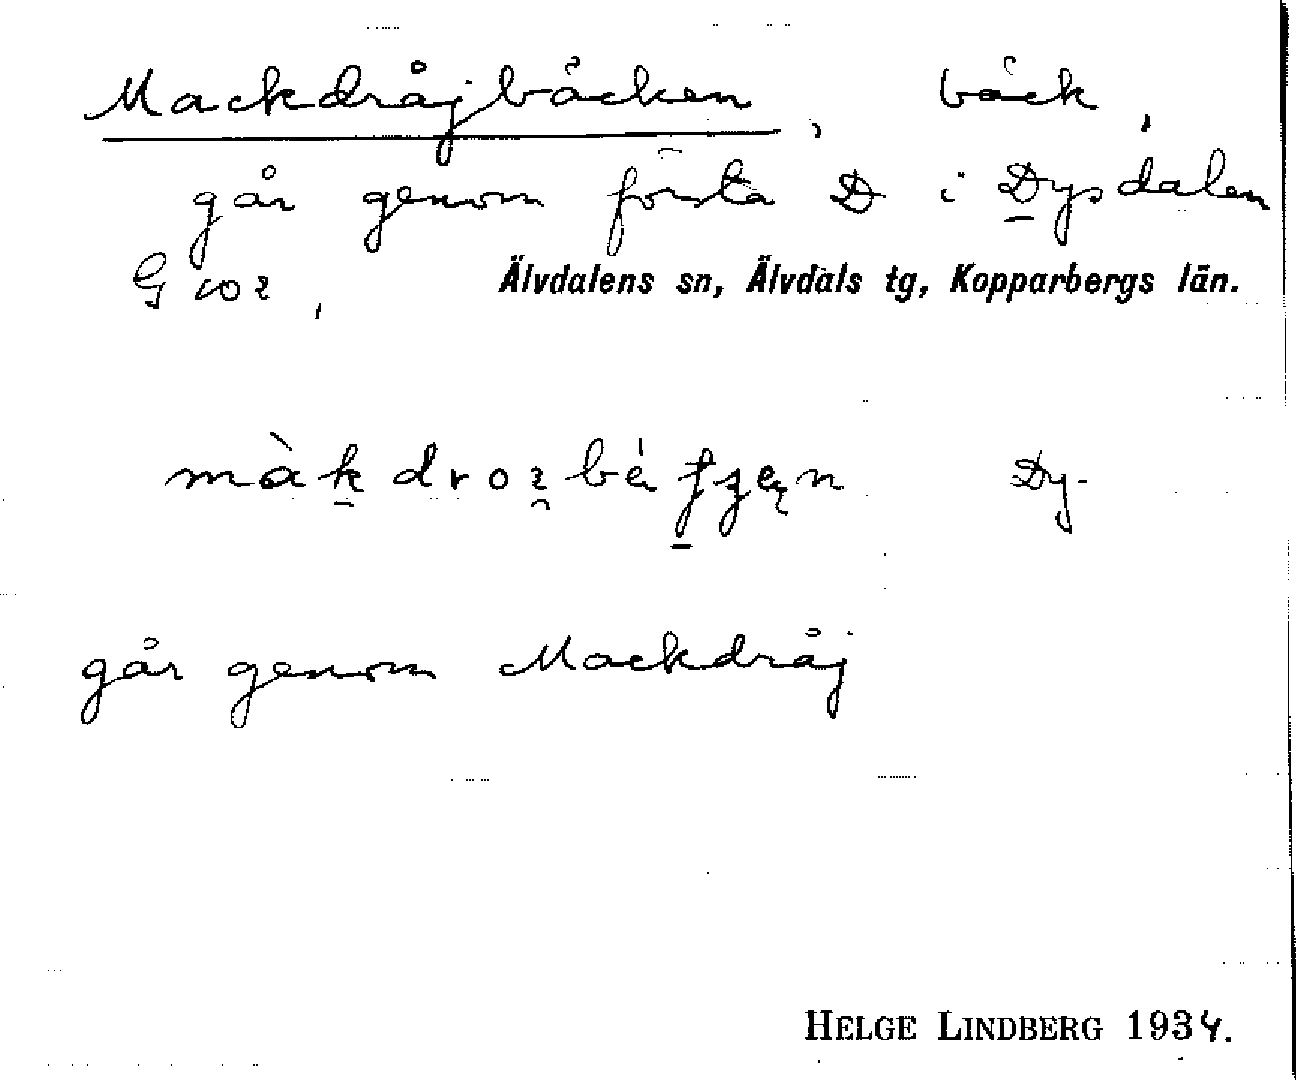 Mackdråjbäcken, bäck,
går genom första D i Dysdalen
G co 2,
Älvdalens sn, Älvdals tg, Kopparbergs län.
Dy.
går genom Mackdråj
HELGE LINDBERG 1934.